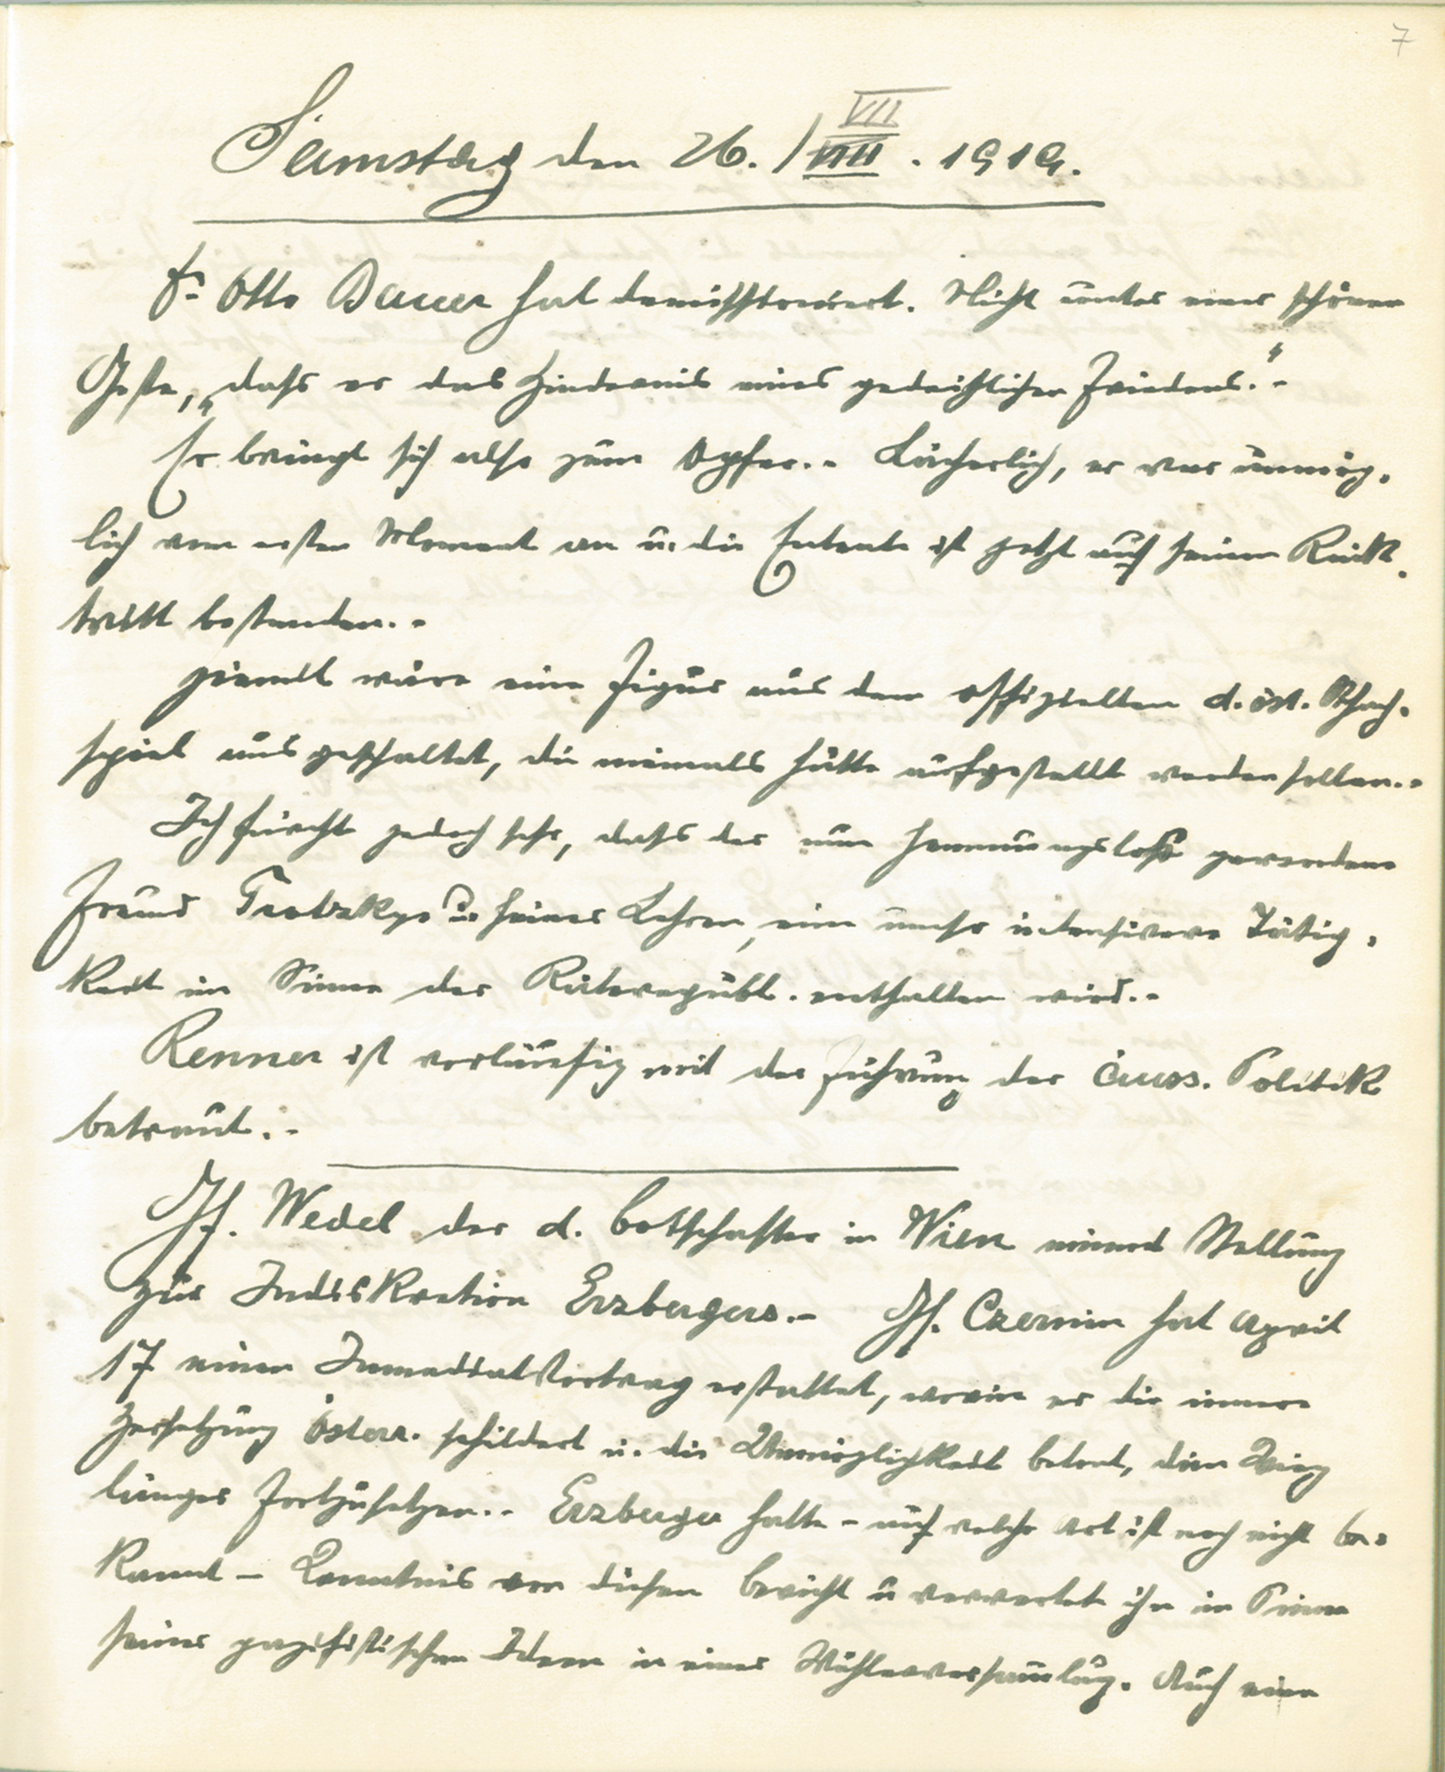 7
Samstag den 26./VII. 1919.
Dr. Otto Bauer hat demissioniert. Nicht unter einer schönen
Geste, „dass er das Hindernis eines gedeihlichen Friedens."-
Er bringt sich also zum Opfer.- Lächerlich, er war unmög-
lich vom ersten Moment an u. die Entente ist jetzt auf seinem Rück-
tritt bestanden.-
Hiemit wäre eine Figur aus dem offiziellen d. öst. Schach-
spiel ausgeschaltet, die niemals hätte aufgestellt werden sollen.-
Ich fürchte jedoch sehr, dass der nun hemmungslos gewordene
Freund Trotzkys u. seiner Lehren, eine umso intensivere Tätig-
keit im Sinne der Räterepubl. entfalten wird.-
Renner ist vorläufig mit der Führung der äuss. Politik
betraut.-
Gf. Wedel der d. Botschafter in Wien nimmt Stellung
zur Indiskretion Erzbergers.- Gf. Czernin hat April
17 einen Immediatvortrag erstattet, worin er die innere
Zersetzung Österr. schildert u. die Unmöglichkeit betont, den Krieg
länger fortzusetzen.- Erzberger hatte - auf welche Art ist noch nicht be-
kannt - Kenntnis von diesem Bericht u verwertet ihn im Sinne
seiner pazifistischen Ideen in einer Wählerversammlung. Auch eine